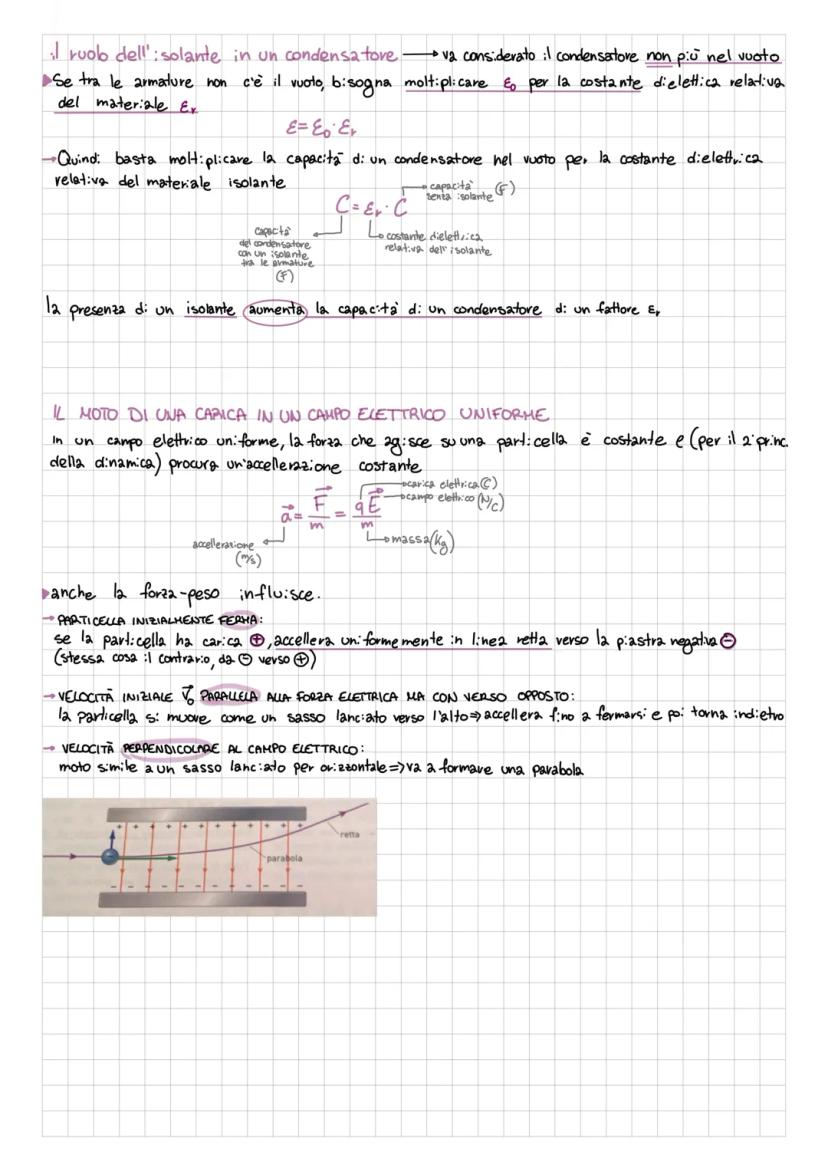 il ruolo dell'isolante in un condensatore → va considerato il condensatore non più nel vuoto
Se tra le armature non c'è il vuoto, bisogna moltiplicare ε₀ per la costante dielettrica relativa
del materiale εᵣ
ε = ε₀·εᵣ
→Quindi basta moltiplicare la capacità di un condensatore nel vuoto per la costante dielettrica
relativa del materiale isolante
capacità
senza isolante (F)
C = εᵣ · C
capacità
del condensatore
con un isolante
tra le armature
(F)
costante dielettrica
relativa dell'isolante
la presenza di un isolante aumenta la capacità di un condensatore di un fattore εᵣ
IL MOTO DI UNA CARICA IN UN CAMPO ELETTRICO UNIFORME
In un campo elettrico uniforme, la forza che agisce su una particella è costante e (per il 2°princ.
della dinamica) procura un'accellerazione costante
carica elettrica (C)
campo elettrico (N/C)
a⃗ = F⃗/m = qE⃗/m
accellerazione
(m/s)
massa (kg)
anche la forza-peso influisce.
→ PARTICELLA INIZIALMENTE FERMA:
se la particella ha carica ⊕, accellera uniformemente in linea retta verso la piastra negativa ⊖
(stessa cosa il contrario, da ⊖ verso ⊕)
→ VELOCITÀ INIZIALE v⃗₀ PARALLELA ALLA FORZA ELETTRICA MA CON VERSO OPPOSTO:
la particella si muove come un sasso lanciato verso l'alto ⇒ accellera fino a fermarsi e poi torna indietro
→ VELOCITÀ PERPENDICOLARE AL CAMPO ELETTRICO:
moto simile a un sasso lanciato per orizzontale => va a formare una parabola
+ + + + + + + +
retta
parabola
− − − − − − − −